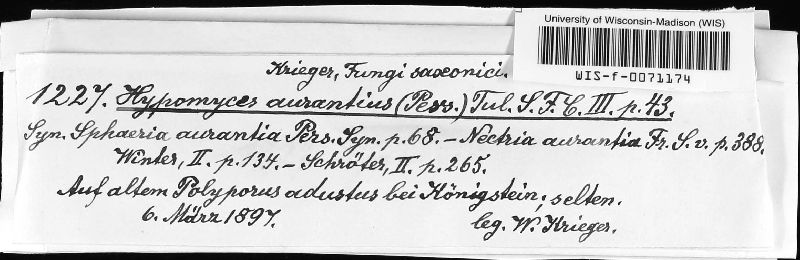 University of Wisconsin-Madison (WIS)
WIS-f-0071174
Krieger, Fungi saxonici.
1227. Hypomyces aurantius (Pers.) Tul. S. F. C. III. p. 43.
Syn. Sphaeria aurantia Pers. Syn. p. 68. – Nectria aurantia Fr. S. v. p. 388.
Winter, II. p. 134. – Schröter, II. p. 265.
Auf altem Polyporus adustus bei Königstein; selten.
6. März 1897.
leg. W. Krieger.